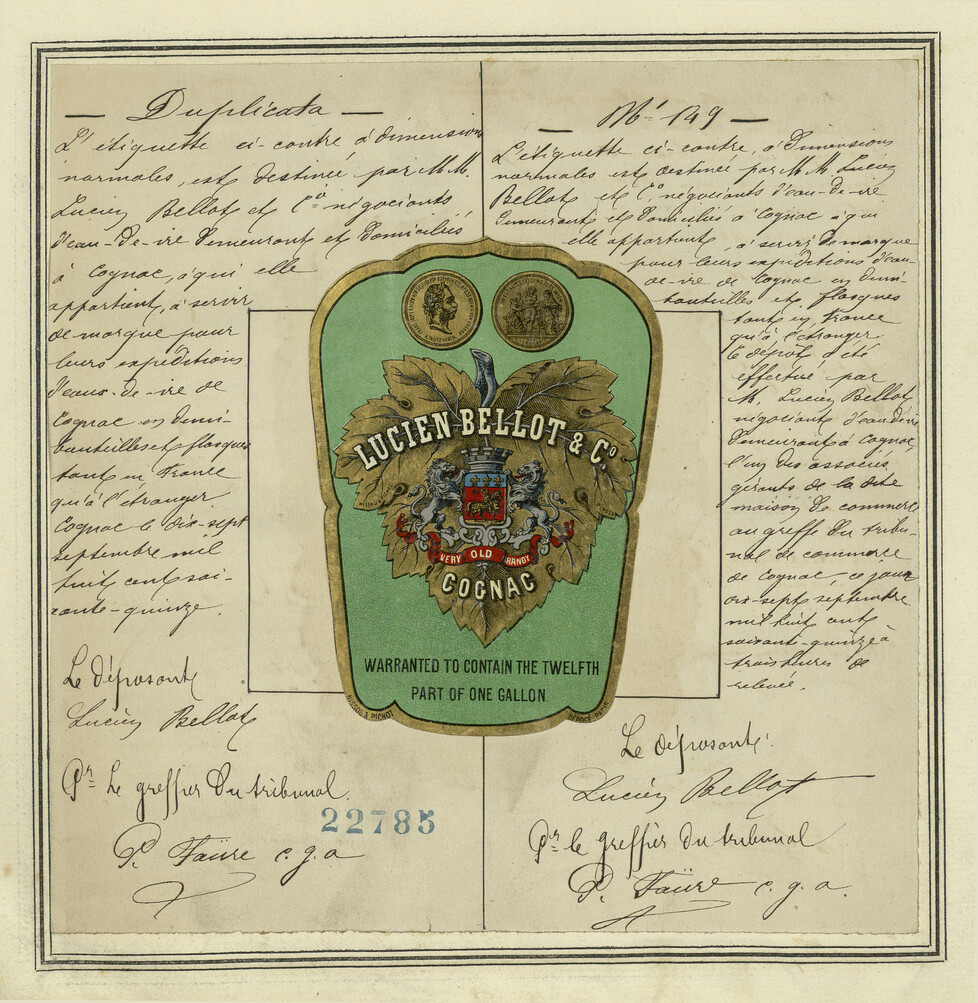 — Duplicata —
L'étiquette ci-contre à dimensions
normales, est destinée par M.M.
Lucien Bellot et Cie négociants
d'eau-de-vie demeurant et domiciliés
à Cognac, à qui elle
appartient, à servir
de marque pour
leurs expéditions
d'eau-de-vie de
Cognac en demi-
bouteilles et flasques
tant en France
qu'à l'étranger
Cognac le dix-sept
septembre mil
huit cent soi-
xante-quinze.
Le déposant
Lucien Bellot
Pr le greffier du tribunal
P. Faure c.g.a
22785
— No 149 —
L'étiquette ci-contre, à dimensions
normales est destinée par M.M. Lucien
Bellot et Cie négociants d'eau-de-vie
demeurant et domiciliés à Cognac à qui
elle appartient, à servir de marque
pour leurs expéditions d'eau-
de-vie de Cognac en demi-
bouteilles et flasques
tant en France
qu'à l'étranger.
Le dépôt a été
effectué par
M. Lucien Bellot
négociant d'eau-de-vie
demeurant à Cognac
l'un des associés
gérants de la dite
maison de commerce
au greffe du tribu-
nal de commerce
de Cognac, ce jour
dix-sept septembre
mil huit cent
soixante-quinze à
trois heures de
relevée.
Le déposant.
Lucien Bellot
Pr le greffier du tribunal
P. Faure c.g.a.
LUCIEN BELLOT & Co
VERY OLD BRANDY
COGNAC
WARRANTED TO CONTAIN THE TWELFTH
PART OF ONE GALLON
& PICHOT
DÉPOSÉ PARIS